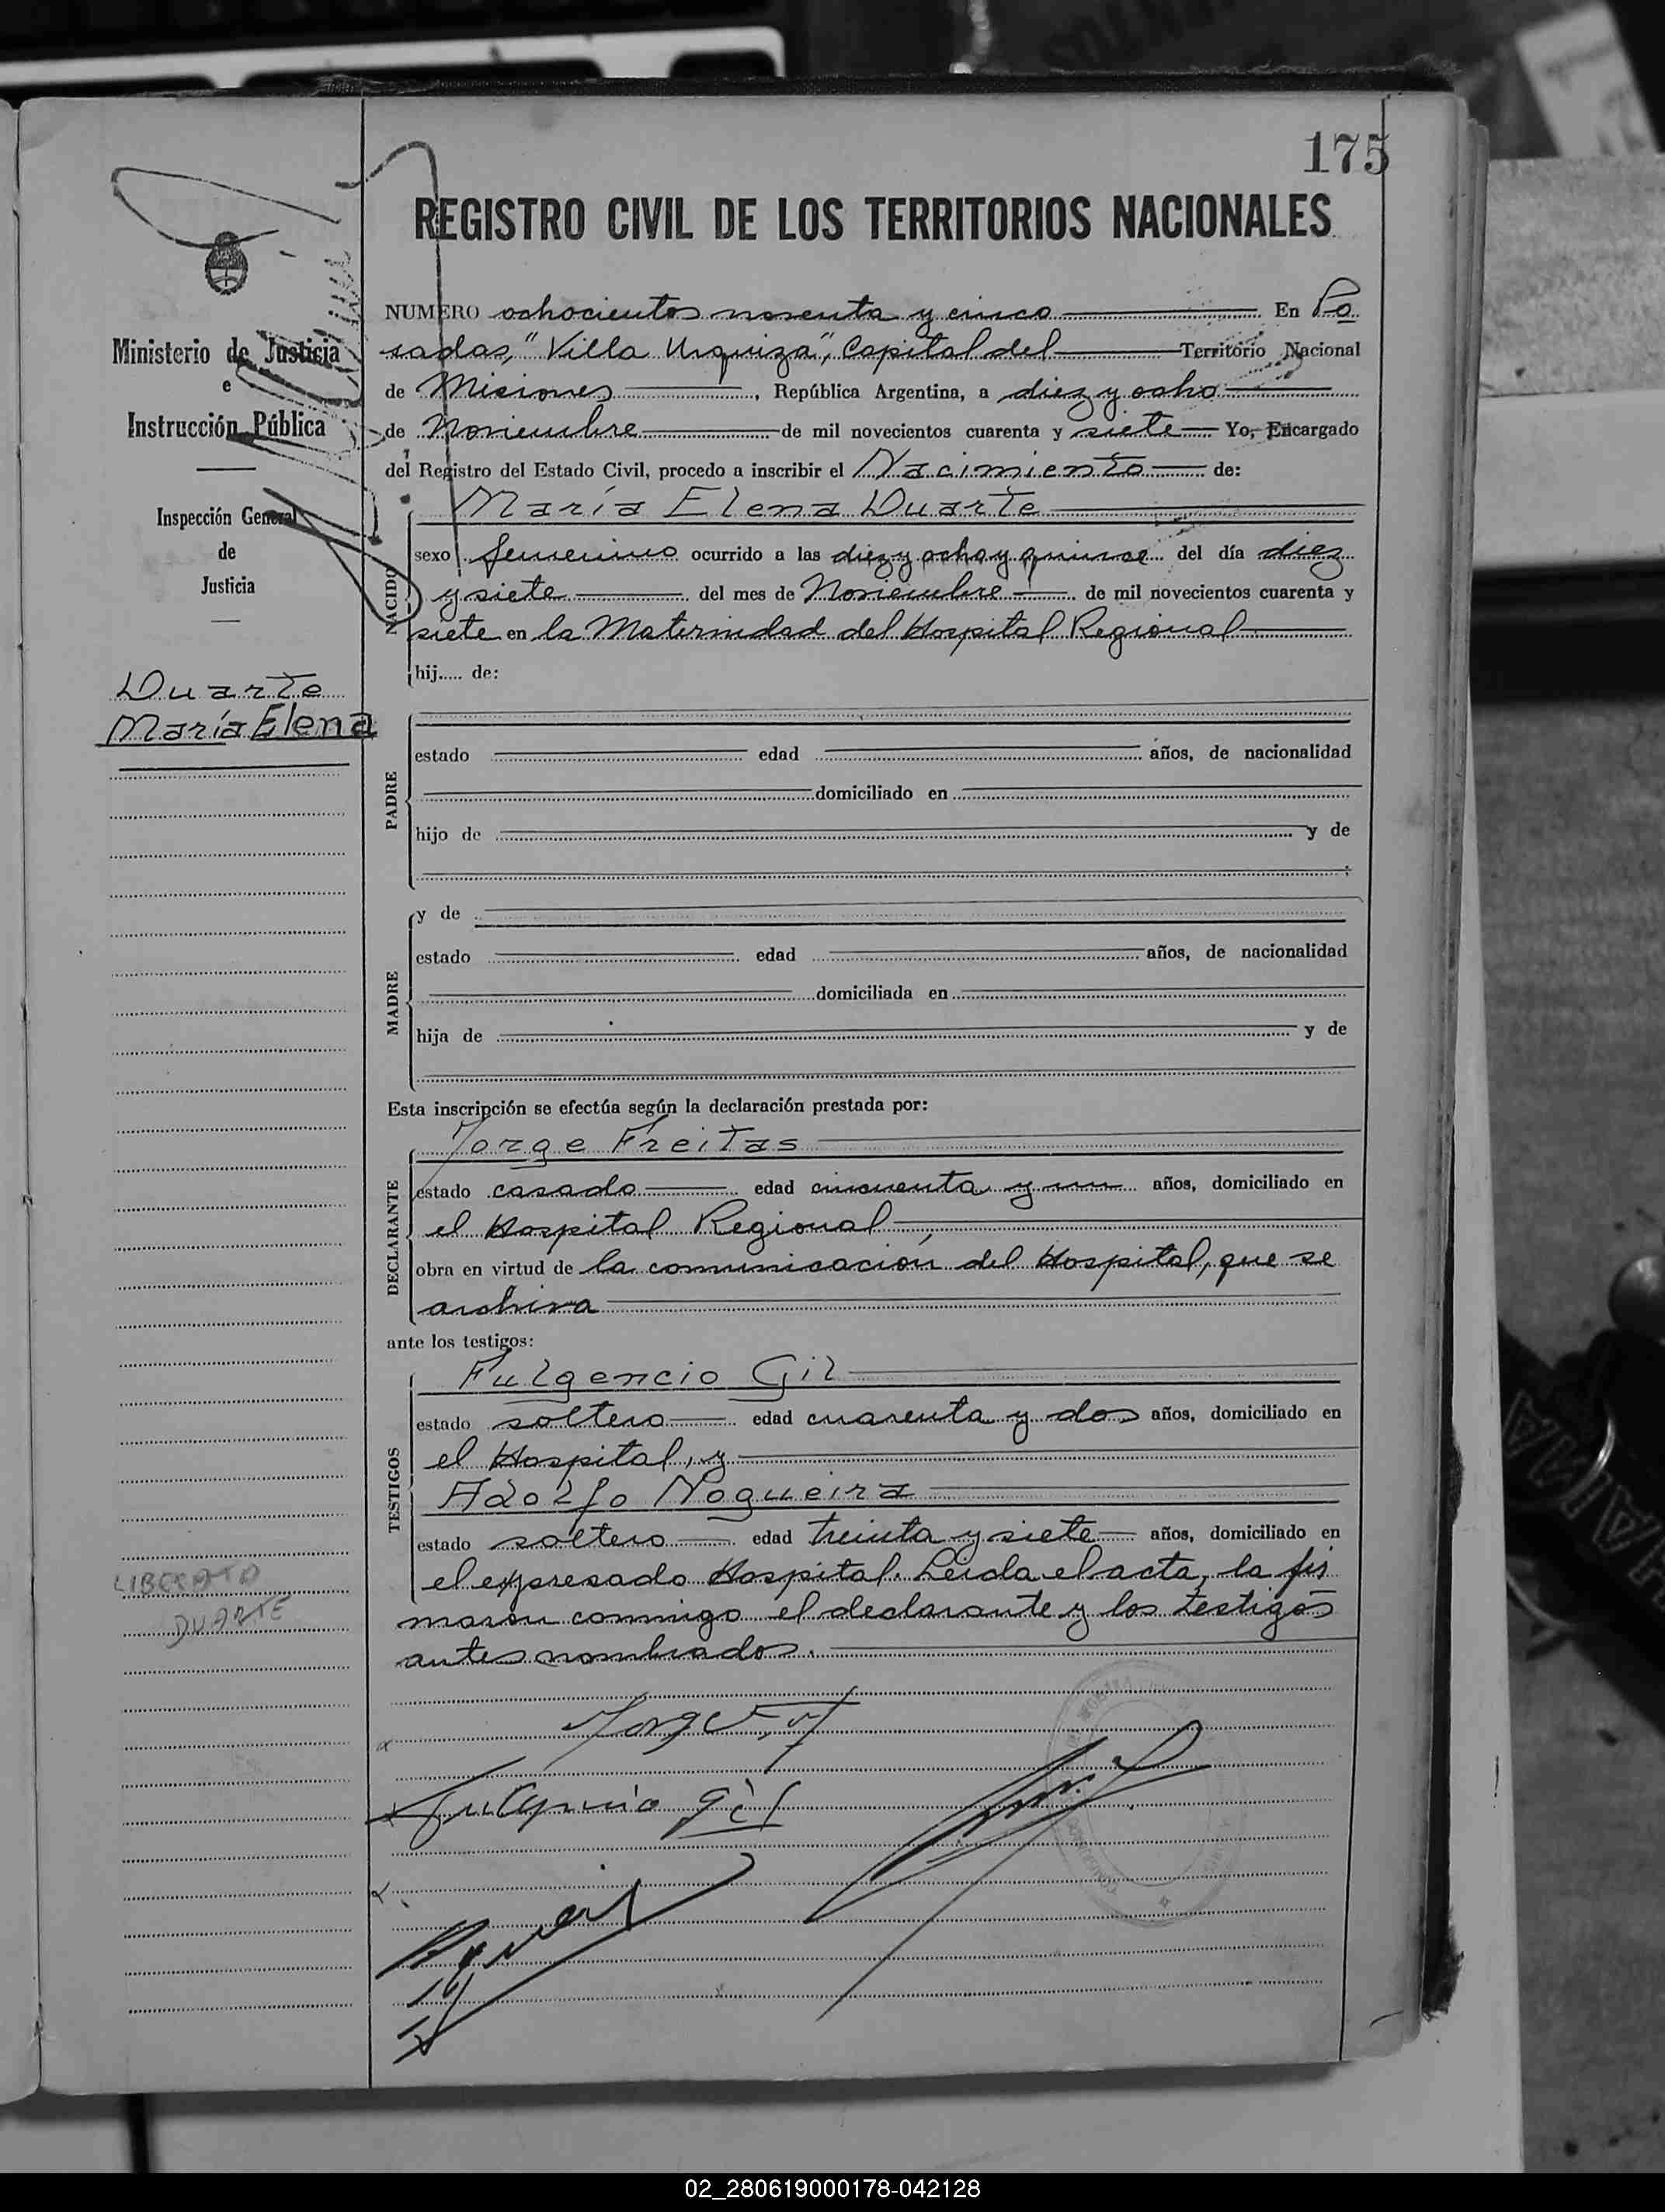 175
REGISTRO CIVIL DE LOS TERRITORIOS NACIONALES
NUMERO ochocientos noventa y cinco En Po
sadas, "Villa Urquiza", Capital del Territorio Nacional
de Misiones, República Argentina, a diez y ocho
de Noviembre de mil novecientos cuarenta y siete Yo, Encargado
del Registro del Estado Civil, procedo a inscribir el Nacimiento de:
Ministerio de Justicia
e
Instrucción Pública
Inspección General
de
Justicia
Duarte
María Elena
LIBERATO
DUARTE
NACIDO
María Elena Duarte
sexo femenino ocurrido a las diez y ocho y quince del día diez
y siete del mes de Noviembre de mil novecientos cuarenta y
siete en la Maternidad del Hospital Regional
hij..... de:
PADRE
estado edad años, de nacionalidad
domiciliado en
hijo de y de
MADRE
y de
estado edad años, de nacionalidad
domiciliada en
hija de y de
Esta inscripción se efectúa según la declaración prestada por:
DECLARANTE
Jorge Freitas
estado casado edad cincuenta y un años, domiciliado en
el Hospital Regional,
obra en virtud de la comunicación del Hospital, que se
archiva
ante los testigos:
TESTIGOS
Fulgencio Gil
estado soltero edad cuarenta y dos años, domiciliado en
el Hospital, y
Adolfo Nogueira
estado soltero edad treinta y siete años, domiciliado en
el expresado Hospital. Leída el acta, la fir
maron conmigo el declarante y los testigos
antes nombrados.
Fulgencio Gil
02_280619000178-042128